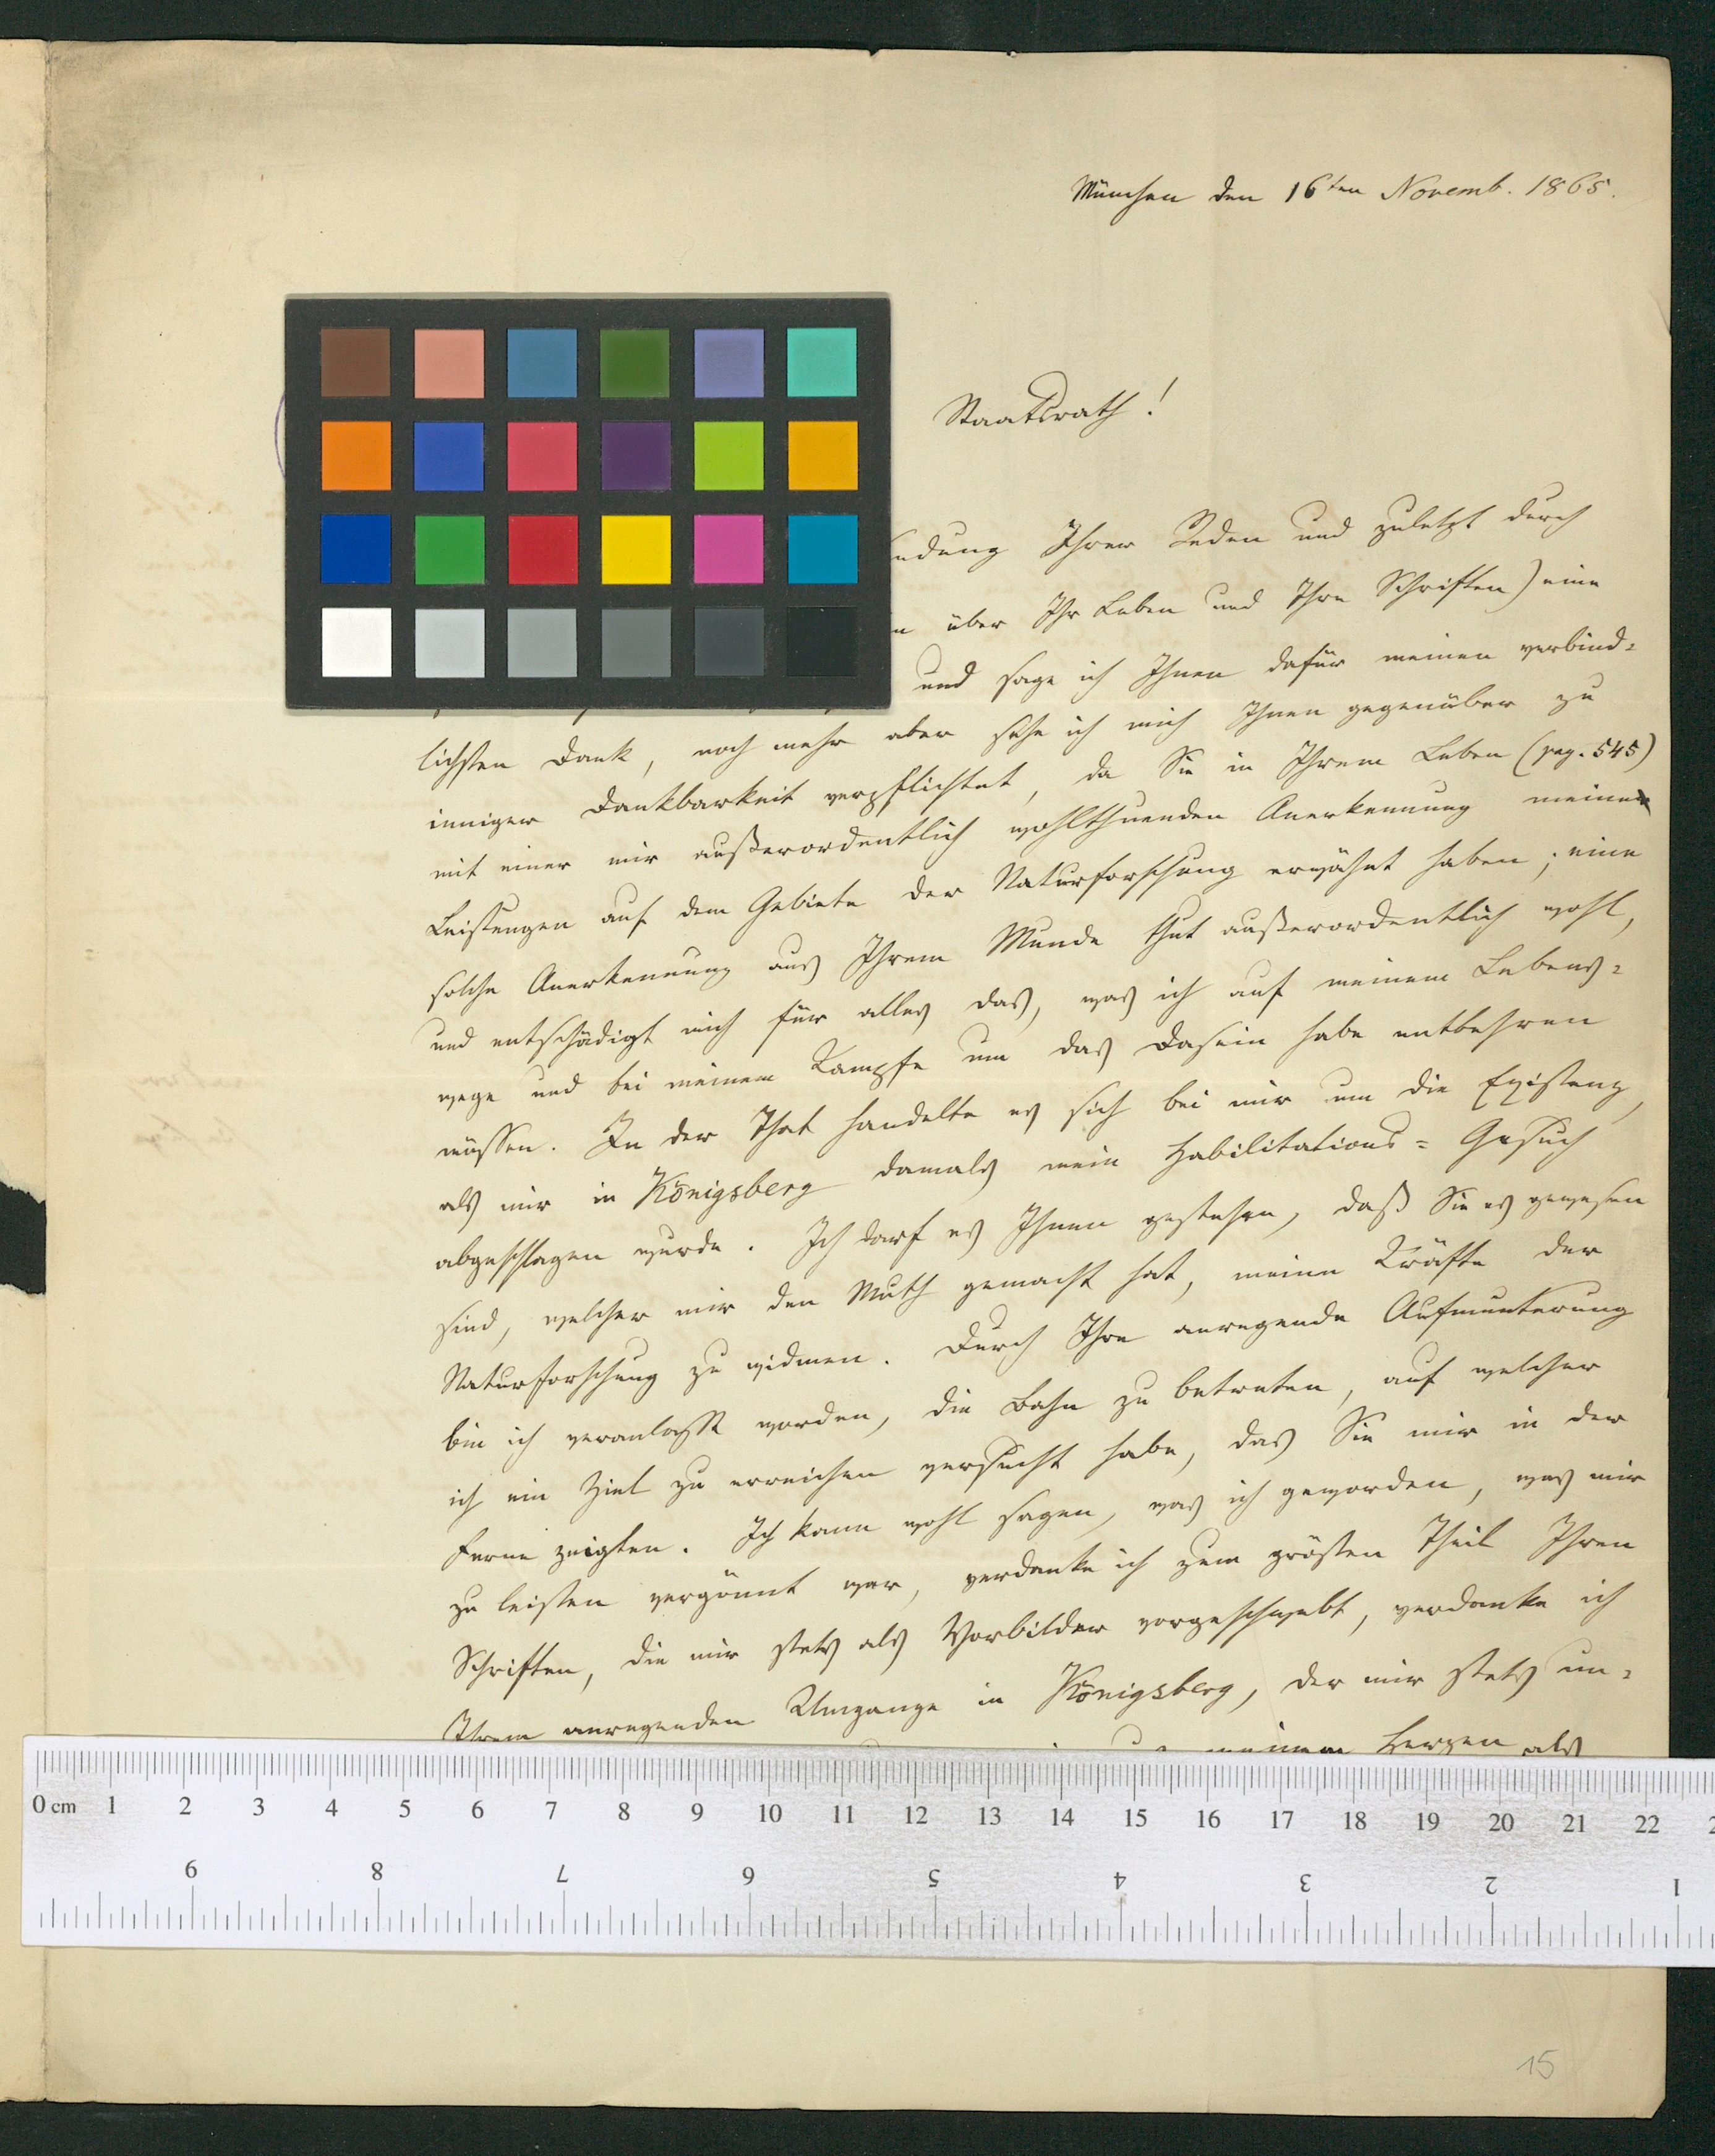 München den 16ten Novemb. 1865.
Staatsrath!
Ihrer Reden und zuletzt durch
über Ihr Leben und Ihre Schriften) eine
und sage ich Ihnen dafür meinen verbind=
lichsten Dank, noch mehr aber sehe ich mich Ihnen gegenüber zu
inniger Dankbarkeit verpflichtet, da Sie in Ihrem Leben (pag. 545)
mit einer mir außerordentlich wohlthuenden Anerkennung meiner
Leistungen auf dem Gebiete der Naturforschung erwähnt haben; eine
solche Anerkennung aus Ihrem Munde thut außerordentlich wohl,
und entschädigt mich für alles das, was ich auf meinem Lebens=
wege und bei meinem Kampfe um das Dasein habe entbehren
müssen. In der That handelte es sich bei mir um die Existenz,
als mir in Königsberg damals mein Habilitations=Gesuch
abgeschlagen wurde. Ich darf es Ihnen gestehen, daß Sie es gewesen
sind, welcher mir den Muth gemacht hat, meine Kräfte der
Naturforschung zu widmen. Durch Ihre anregende Aufmunterung
bin ich veranlaßt worden, die Bahn zu betreten, auf welcher
ich ein Ziel zu erreichen versucht habe, das Sie mir in der
Ferne zeigten. Ich kann wohl sagen, was ich geworden, was mir
zu leisten vergönnt war, verdanke ich zum größten Theil Ihren
Schriften, die mir stets als Vorbilder vorgeschwebt, verdanke ich
Ihrem anregenden Umgange in Königsberg, der mir stets un=
meinem Herzen als
0 cm 1 2 3 4 5 6 7 8 9 10 11 12 13 14 15 16 17 18 19 20 21 22
9 8 7 6 5 4 3 2 1
15